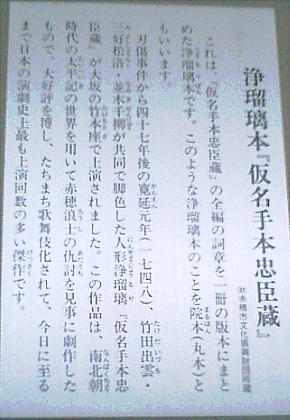 浄瑠璃本『仮名手本忠臣蔵』
㈶赤穂市文化振興財団所蔵
これは、『仮名手本忠臣蔵』の全編の詞章を一冊の版本にまと
めた浄瑠璃本です。このような浄瑠璃本のことを院本(丸本)と
もいいます。
刃傷事件から四十七年後の寛延元年(一七四八)、竹田出雲・
三好松洛・並木千柳が共同で脚色した人形浄瑠璃『仮名手本忠
臣蔵』が大坂の竹本座で上演されました。この作品は、南北朝
時代の太平記の世界を用いて赤穂浪士の仇討を見事に劇作した
もので、大好評を博し、たちまち歌舞伎化されて、今日に至る
まで日本の演劇史上最も上演回数の多い傑作です。